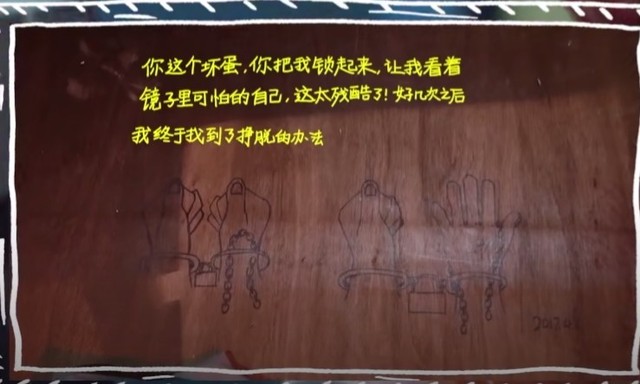 你这个坏蛋，你把我锁起来，让我看着
镜子里可怕的自己，这太残酷了！好几次之后
我终于找到了挣脱的办法